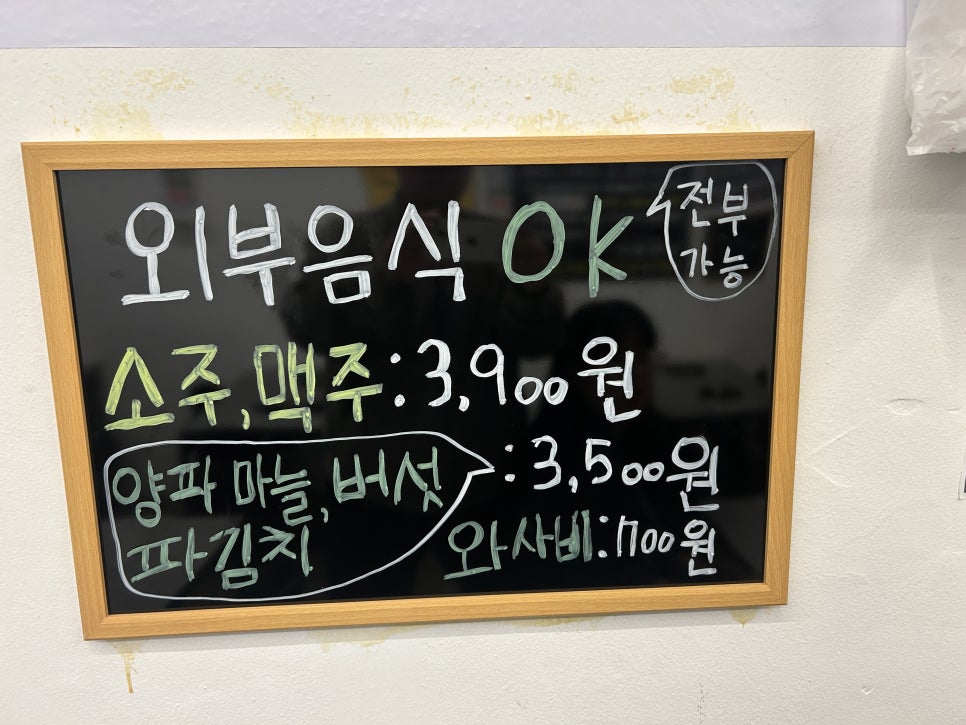 외부음식 OK
전부
가능
소주,맥주:3,900원
양파 마늘,버섯
파김치
:3,500원
와사비:700원